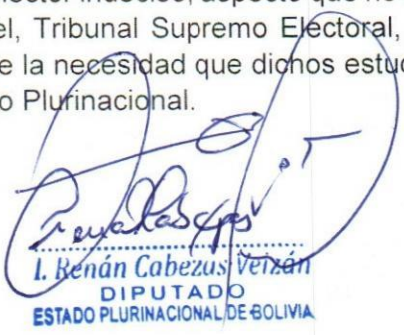 el, Tribunal Supremo Electoral,
e la necesidad que dichos estud
o Plurinacional.
I. Renán Cabezas Veizán
DIPUTADO
ESTADO PLURINACIONAL DE BOLIVIA